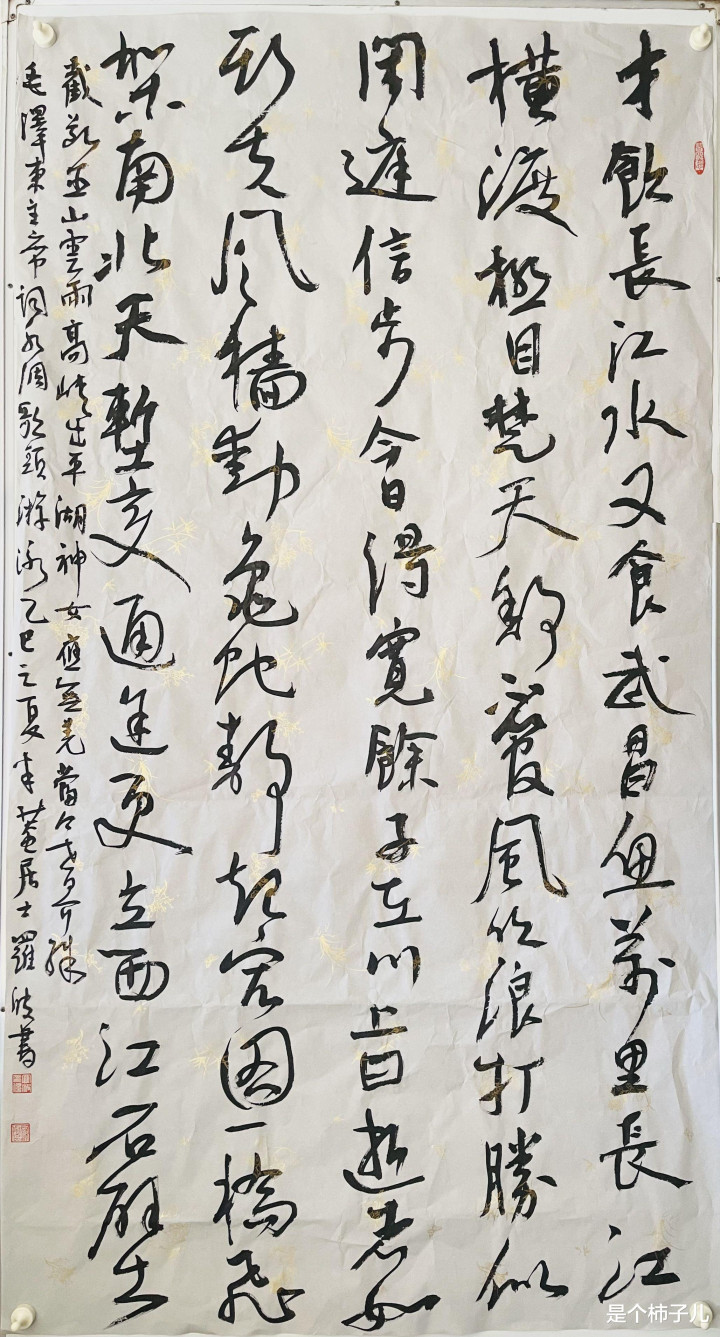 才飲長江水又食武昌魚萬里長江
橫渡極目楚天舒不管風吹浪打勝似
閑庭信步今日得寬餘子在川上曰逝者如
斯夫風檣動龜蛇靜起宏圖一橋飛
架南北天塹變通途更立西江石壁
截斷巫山雲雨高峽出平湖神女應無恙當今世界殊
毛澤東主席詞水調歌頭游泳乙巳之夏菴居士羅書
是个柿子儿